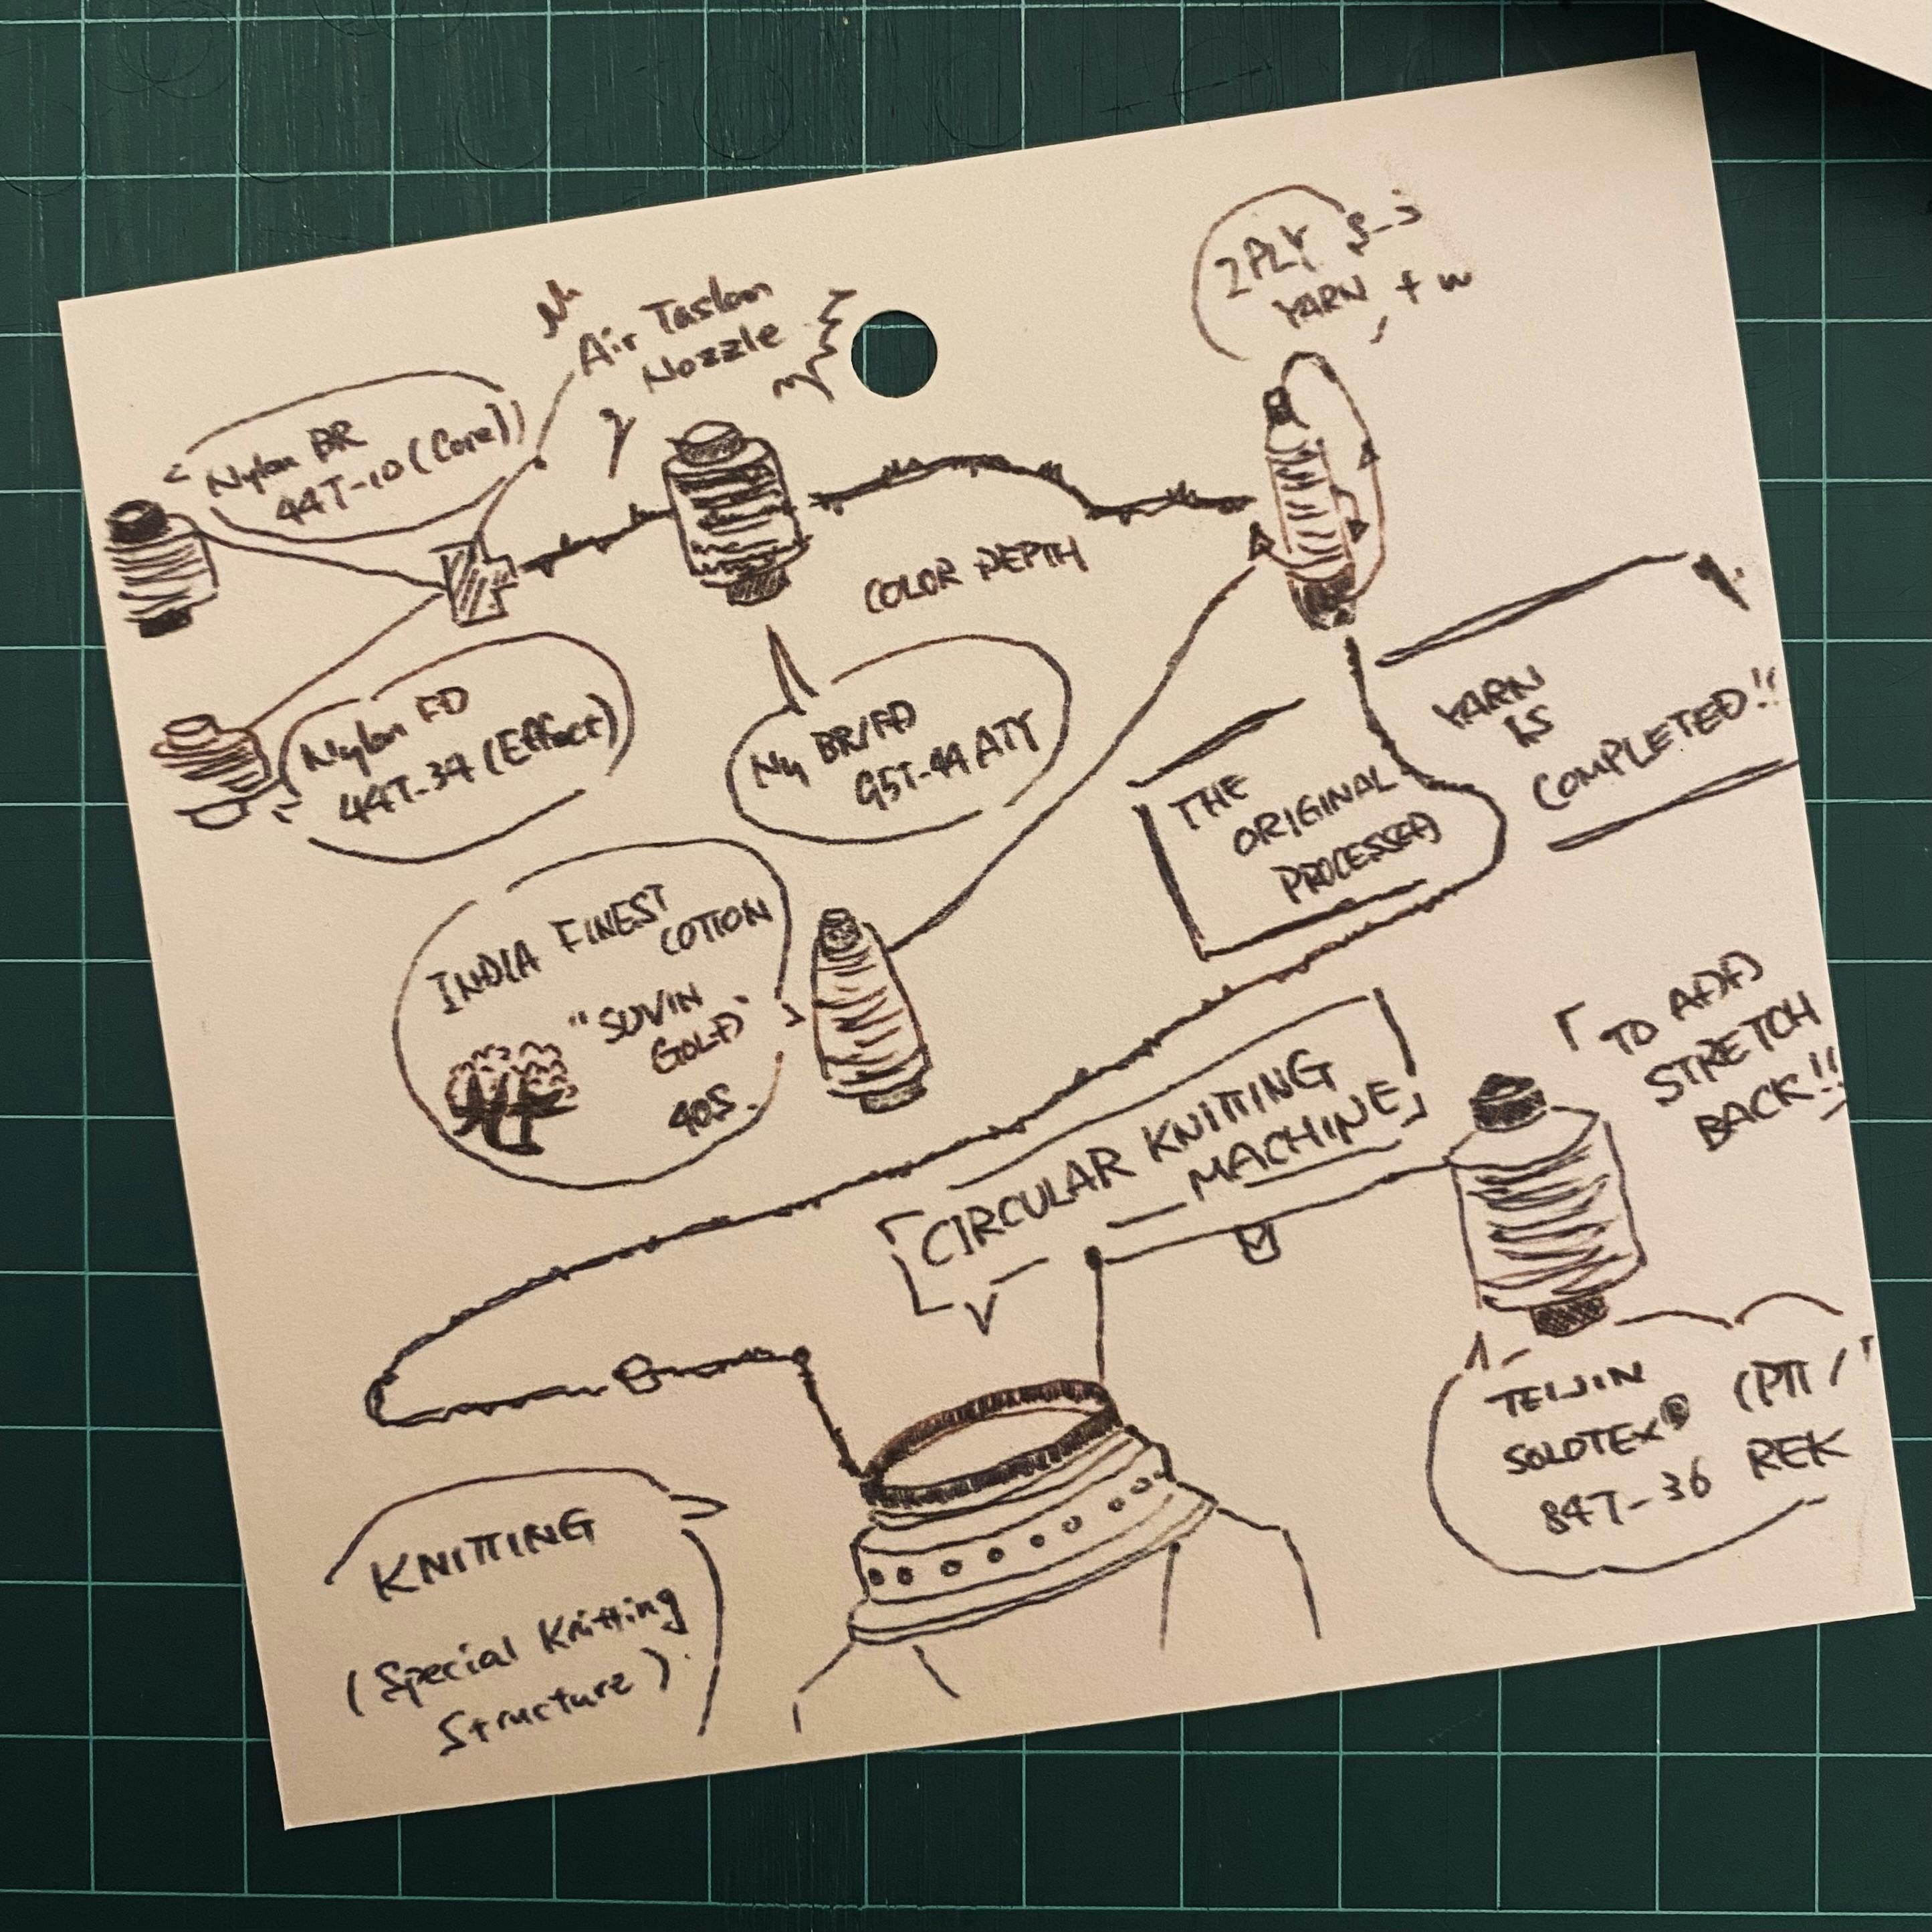 Air Taslan
Nozzle
2PLY
YARN
Nylon BR
44T-10 (Core)
COLOR DEPTH
Nylon FD
44T-34 (Effect)
Ny BR/FD
95T-44 ATY
YARN
IS
COMPLETED!!
THE
ORIGINAL
PROCESSED
INDIA FINEST
COTTON
"SUVIN
GOLD"
40S.
TO ADD
STRETCH
BACK!!
CIRCULAR KNITTING
MACHINE
TEIJIN
SOLOTEX® (PTT /
84T-36 REK
KNITTING
(Special Knitting
Structure)